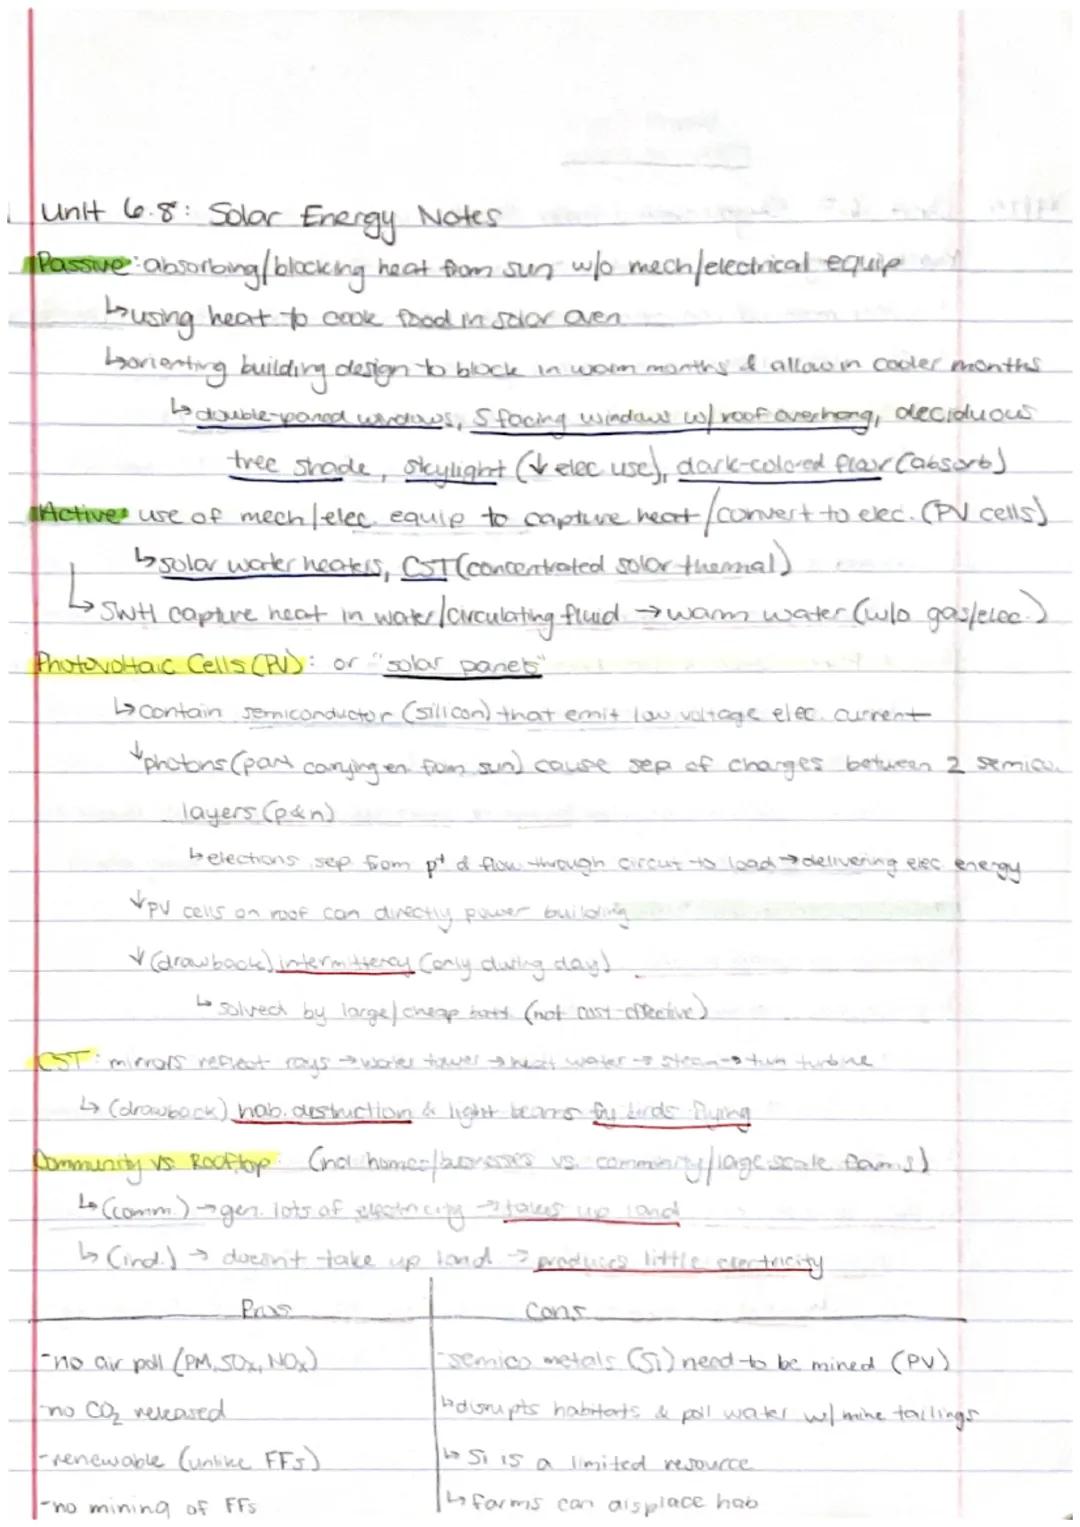 Unit 6.8: Solar Energy Notes
Passive: absorbing/blocking heat from sun w/o mech/electrical equip
↳using heat to cook food in solar oven
↳orienting building design to block in warm months & allow in cooler months
↳double-paned windows, S facing windows w/ roof overhang, deciduous
tree shade, skylight (↓ elec use), dark-colored floor (absorb)
Active: use of mech/elec. equip to capture heat/convert to elec. (PV cells)
↳solar water heaters, CST (concentrated solar thermal)
↳SWH capture heat in water/circulating fluid →warm water (w/o gas/elec.)
Photovoltaic Cells (PV): or "solar panels"
↳contain semiconductor (silicon) that emit low voltage elec. current
↓photons (part carrying en. from sun) cause sep of charges between 2 semico.
layers (p&n)
↳electrons sep from p⁺ & flow through circut to load→delivering elec energy
↓PV cells on roof can directly power building
↓(drawback) intermittency (only during day)
↳solved by large/cheap batt. (not cost-effective)
CST: mirrors reflect rays →water tower →heat water → steam → turn turbine
↳ (drawback) hab. destruction & light beams fry birds flying
Community vs Rooftop: (ind homes/businesses vs. community/large scale farms)
↳(comm.) →gen. lots of electricity →takes up land
↳ (ind.) → doesn't take up land → produces little electricity
Pros Cons
-no air poll (PM, SOx, NOx) -semico metals (Si) need to be mined (PV)
-no CO₂ released ↳disrupts habitats & poll water w/ mine tailings
-renewable (unlike FFs) ↳ Si is a limited resource
-no mining of FFs ↳ farms can displace hab